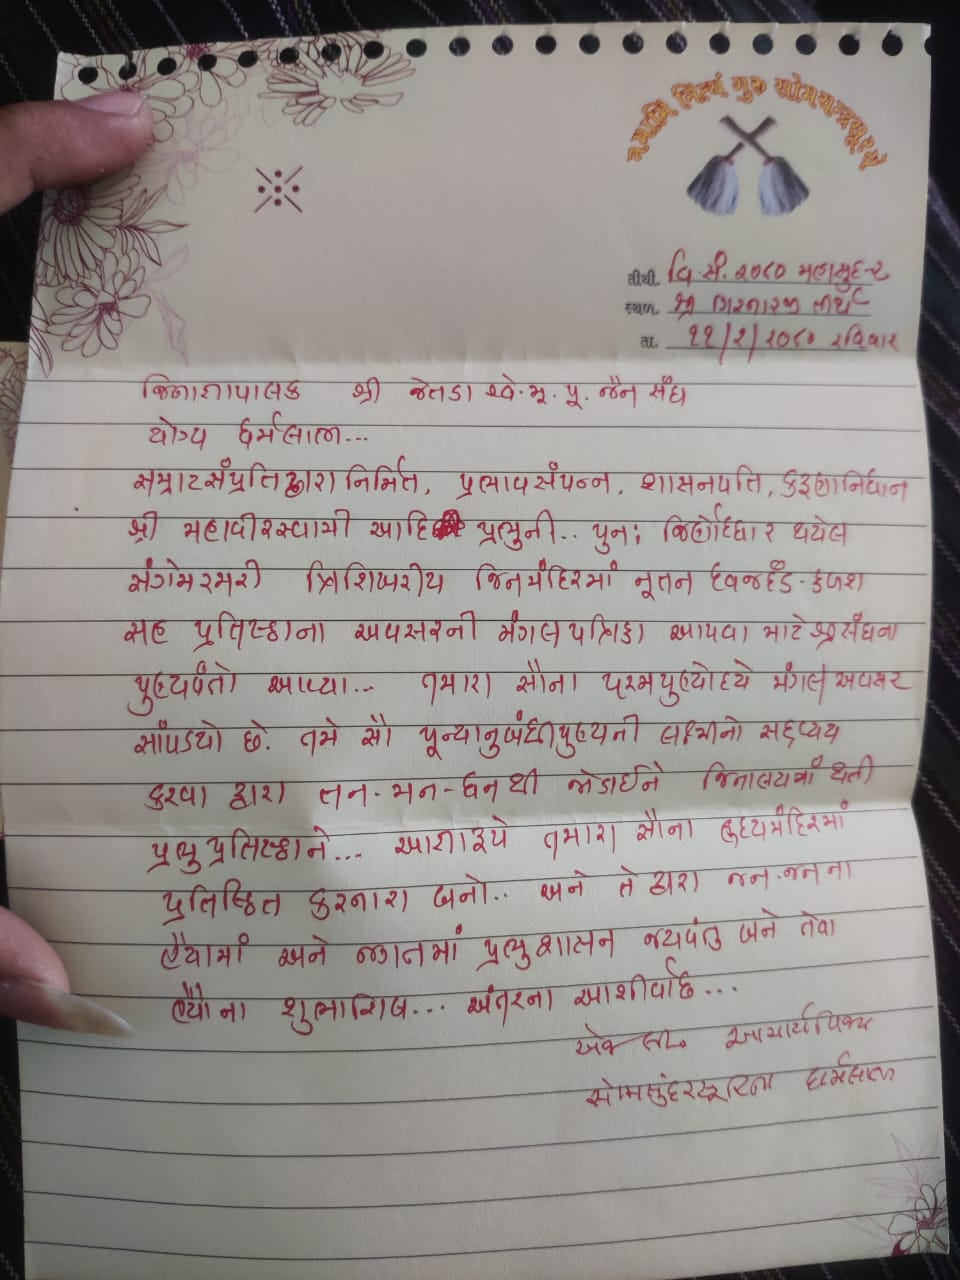 નમામિ નિત્યં ગુરુ સોમચન્દ્રસૂરયે
તીથી. વિ.સં. ૨૦૮૦ મહાસુદ-૨
સ્થળ. શ્રી ગિરનારજી તીર્થ
તા. ૧૧/૨/૨૦૮૦ રવિવાર
જિનાજ્ઞાપાલક શ્રી જેતડા શ્વે.મૂ.પૂ. જૈન સંઘ
યોગ્ય ધર્મલાભ...
સમ્રાટસંપ્રતિદ્વારા નિર્મિત, પ્રભાવસંપન્ન, શાસનપતિ, કરૂણાનિધાન
શ્રી મહાવીરસ્વામી આદિ પ્રભુની.. પુનઃ જિર્ણોધ્ધાર થયેલ
સંગેમરમરી ત્રિશિખરીય જિનમંદિરમાં નૂતન ધ્વજદંડ-કળશ
સહ પ્રતિષ્ઠાના અવસરની મંગલ પત્રિકા આપવા માટે શ્રી સંઘના
પુણ્યવંતો આવ્યા... તમારા સૌના પરમપુણ્યોદયે મંગલ અવસર
સાંપડ્યો છે. તમે સૌ પૂન્યાનુબંધીપુણ્યની લક્ષ્મીનો સદ્વ્યય
કરવા દ્વારા તન-મન-ધનથી જોડાઈને જિનાલયમાં થતી
પ્રભુપ્રતિષ્ઠાને... આશારૂપે તમારા સૌના હૃદયમંદિરમાં
પ્રતિષ્ઠિત કરનારા બનો.. અને તે દ્વારા જન-જનના
હૈયામાં અને જગતમાં પ્રભુશાસન જયવંતુ બને તેવા
હૈયાના શુભાશિષ... અંતરના આશીર્વાદ...
એજ લી. આચાર્યવિજય
સોમસુંદરસૂરિના ધર્મલાભ